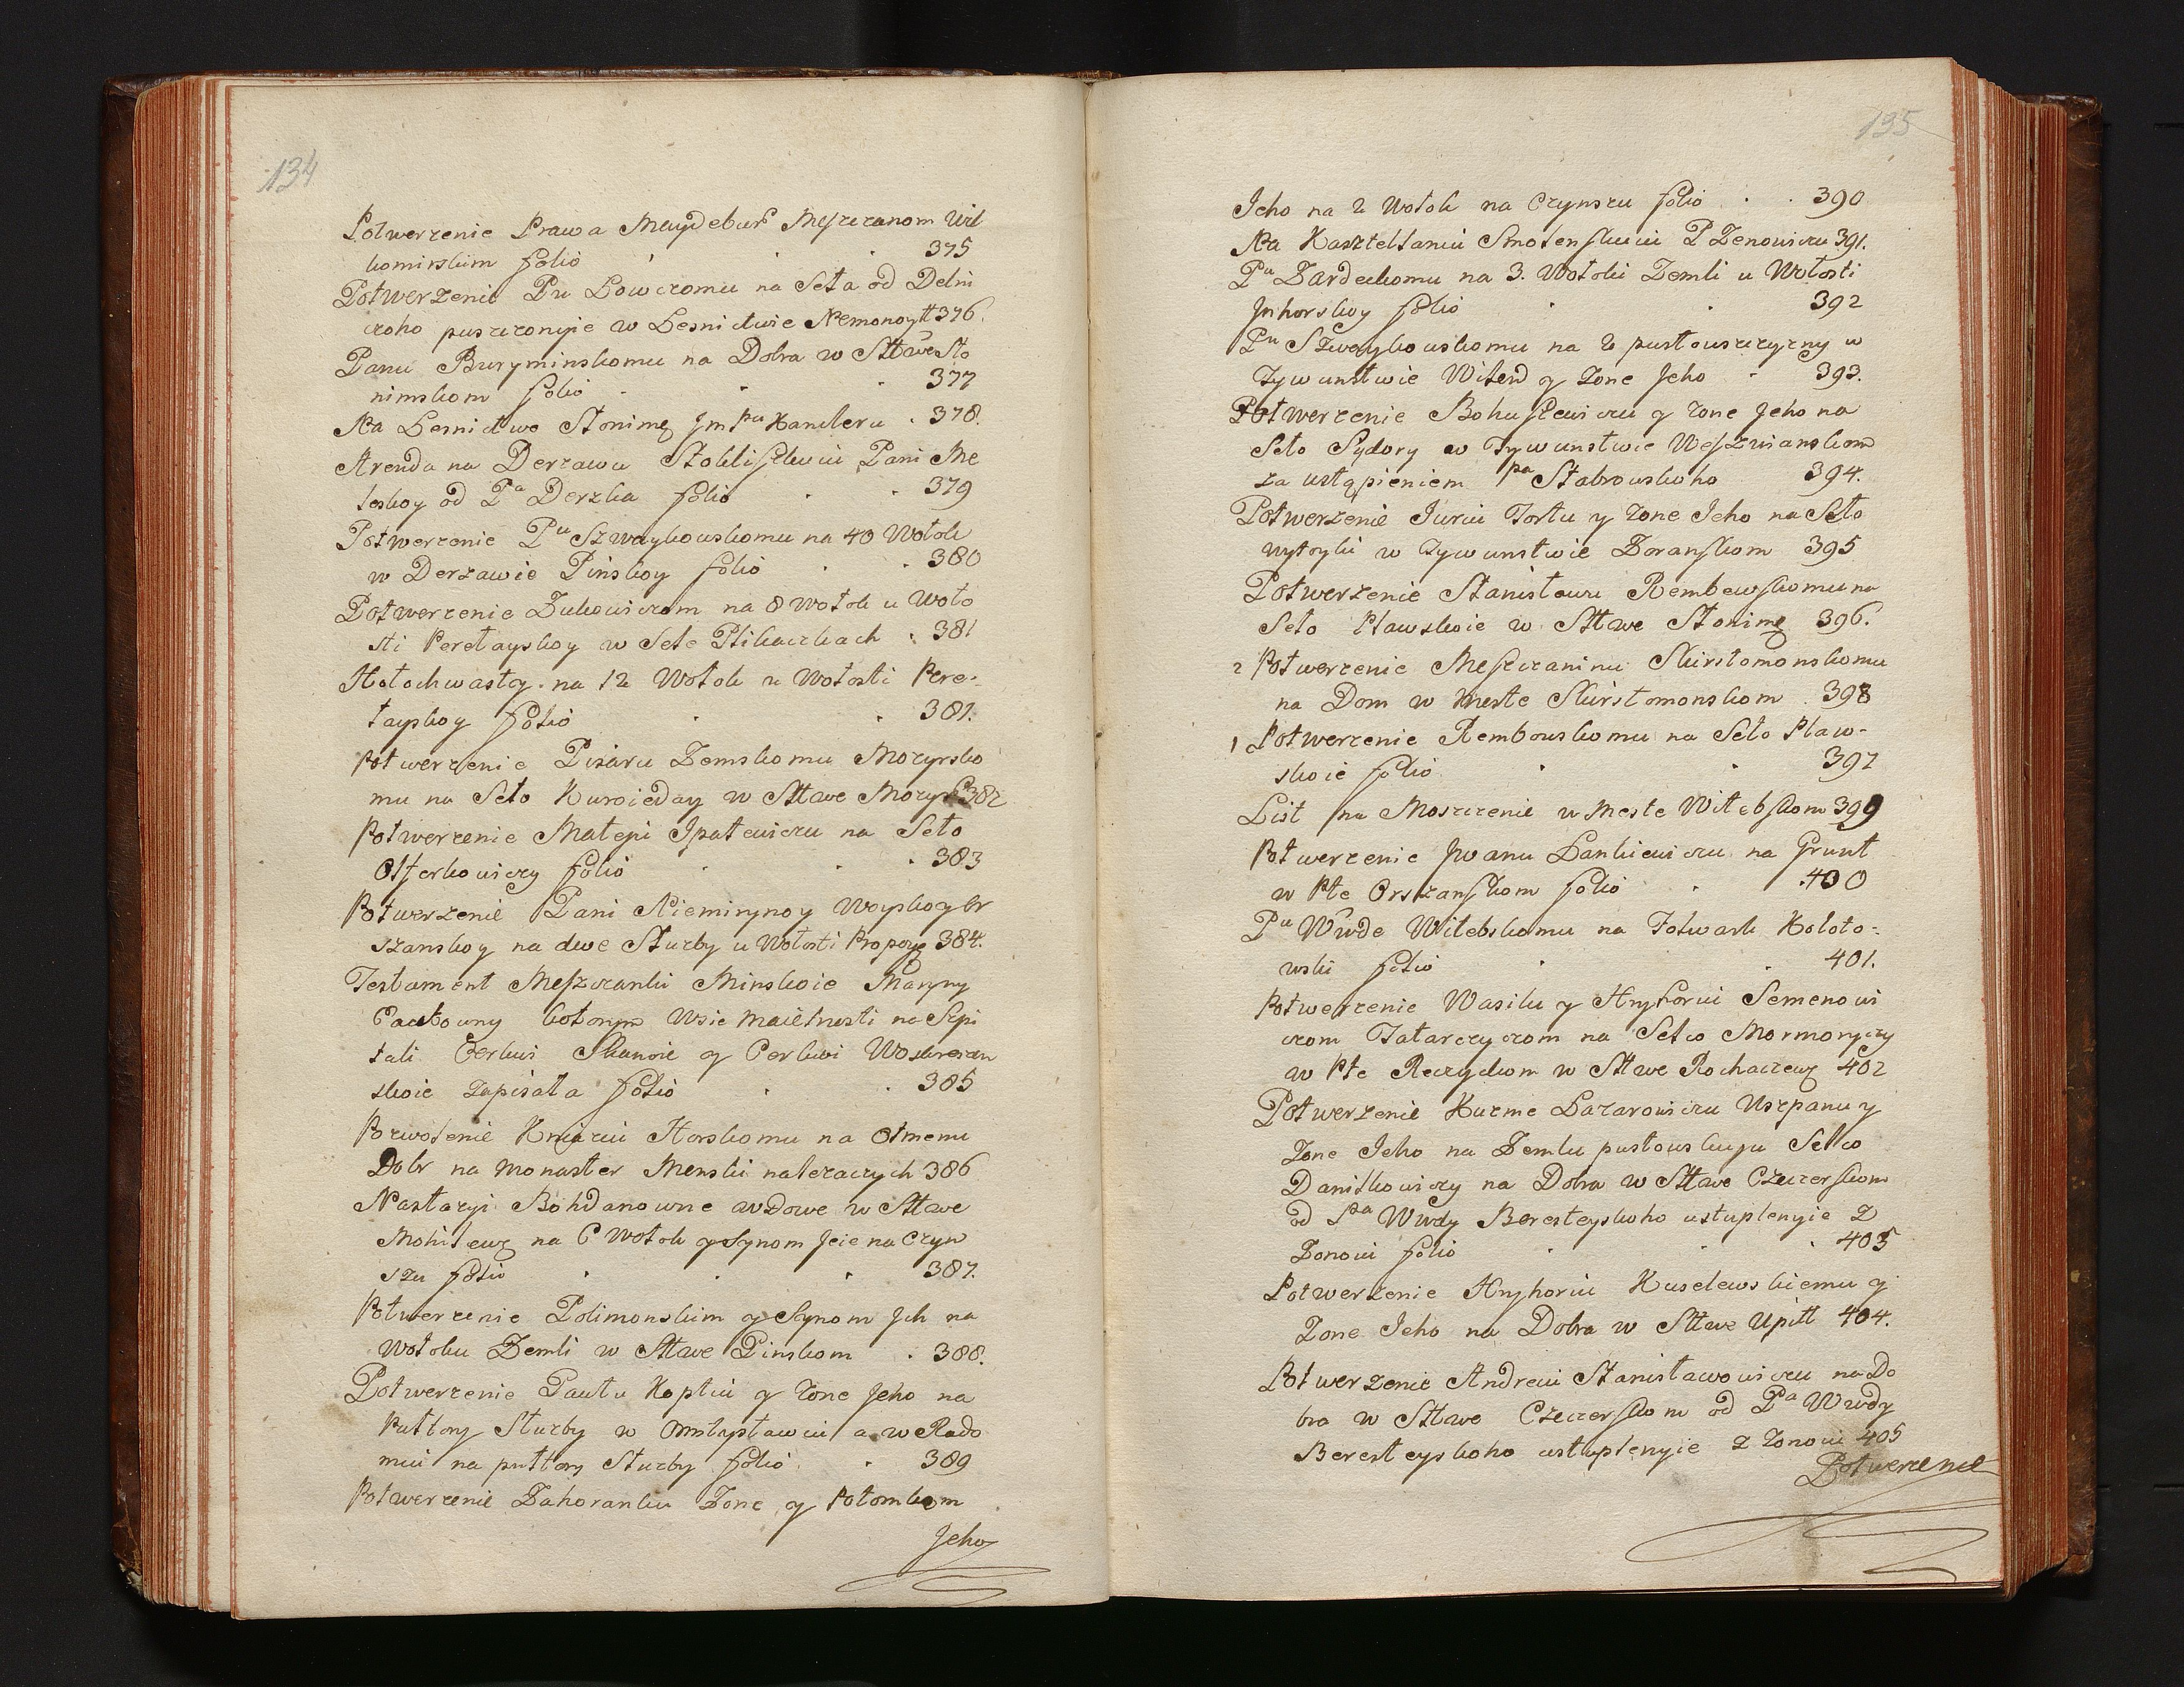 134
Potwerzenie Prawa Maydebur Meszczanom Wił
komirskim folio 375
Potwerzenie Pu Łowczomu na Seła od Delni
czoho puszczonyie w Lesnictwie Nemonoytt 376.
Panu Buryminskomu na Dobra w Sttwe Sło
nimskom folio 377
Na Lesnictwo Słonimę Jmpu Kancleru 378.
Arenda na Derzawu Stokliszkuiu Pani Me
leskoy od Pa Derzka folio 379
Potwerzenie Pu Szwaykowskomu na 40 Wołok
w Derzawie Pinskoy folio 380
Potwerzenie Zukowiczom na 8 Wołok u Woło
sti Perełayskoy w Sele Plikaczkach 381
Hołochwasty na 12 Wołok u Wołosti Pere-
łayskoy folio 381.
Potwerzenie Pisaru Zemskomu Mozyrsko
mu na Seło Kuroieday w Sttwe Mozyr 382
Potwerzenie Matepi Ipatewiczu na Seło
Olferkowiczy folio 383
Potwerzenie Pani Niemirynoy Woyskoy Or
szanskoy na dwe Słuzby u Wołosti Propoy 384.
Testament Meszczanki Minskoie Maryny
Pawłowny kotorym Wsie Maietnosti na Szpi
tali Cerkwi y Cerkwi Woskresen
skoie zapisała folio 385
Pozwolenie Kniaziu Horskomu na Otmenu
Dobr na Monaster Menski nalezaczych 386
Nastazyi Bohdanowne wdowe w Sttwe
Mohilewę na 6 Wołok y Synom Jeie na Czyn
szu folio 387.
Potwerzenie Polimonskim y Synom Jch na
Wołoku Zemli w Sttwe Pinskom 388.
Potwerzenie Pawłu Koptiu y Zone Jeho na
Pułtory Słuzby w Omstysławiu a w Rado
mui na pułtory Słuzby folio 389
Potwerzenie Zahoranku Zone y Potomkom
Jeho
135
Jeho na 2 Wołok na Czynszu folio 390
Na Kasztellaniu Smolenskuiu P Zenowiczu 391.
Pu Zardeckomu na 3. Wołoki Zemli u Wołosti
Jnhorskoy folio 392
Pu Szwaykowskomu na 2 pustowszczyzny w
Tywunstwie Wilend y Zone Jeho 393.
Potwerzenie Bohuszewiczu y zone Jeho na
Seło Sydory w Tywunstwie Weszwianskom
za ustąpieniem pa Stabrowskoho 394.
Potwerzenie Juriu Tortu y zone Jeho na Seło
Wytoyki w Tywunstwie Zoranskom 395
Potwerzenie Stanisławu Rembewskomu na
Seło Pławskoie w Sttwe Słonimę 396.
2 Potwerzenie Meszczaninu Skirstomonskomu
na Dom w Meste Skirstomonskom 398
1 Potwerzenie Rembowskomu na Seło Pław-
skoie folio 397
List na Moszczenie w Meste Witebskom 399
Potwerzenie Jwanu Łankiewiczu na Grunt
w Pte Orszanskom folio 400
Pu Wwde Witebskomu na Folwark Koloto-
wski folio 401.
Potwerzenie Wasilu y Hryhoriu Semenowi
czom Tatarczyczom na Selco Mormonyczy
w Pte Reczyckom w Sttwe Rochaczewę 402
Potwerzenie Kuzme Lazarowiczu Uszpanu y
Zone Jeho na Zemlu pustowskuju Selco
Daniłkowiczy na Dobra w Sttwe Czeczerskom
od Pa Wwdy Beresteyskoho ustuplenyie Z
Zonoiu folio 403
Potwerzenie Hryhoriu Kuselewskiemu y
Zone Jeho na Dobra w Sttwe Upitt 404.
Potwerzenie Andreiu Stanisławowiczu na Do
bra w Sttwe Czeczerskom od Pa Wwdy
Beresteyskoho ustuplenyie Z Zonoiu 405
Potwerzenie